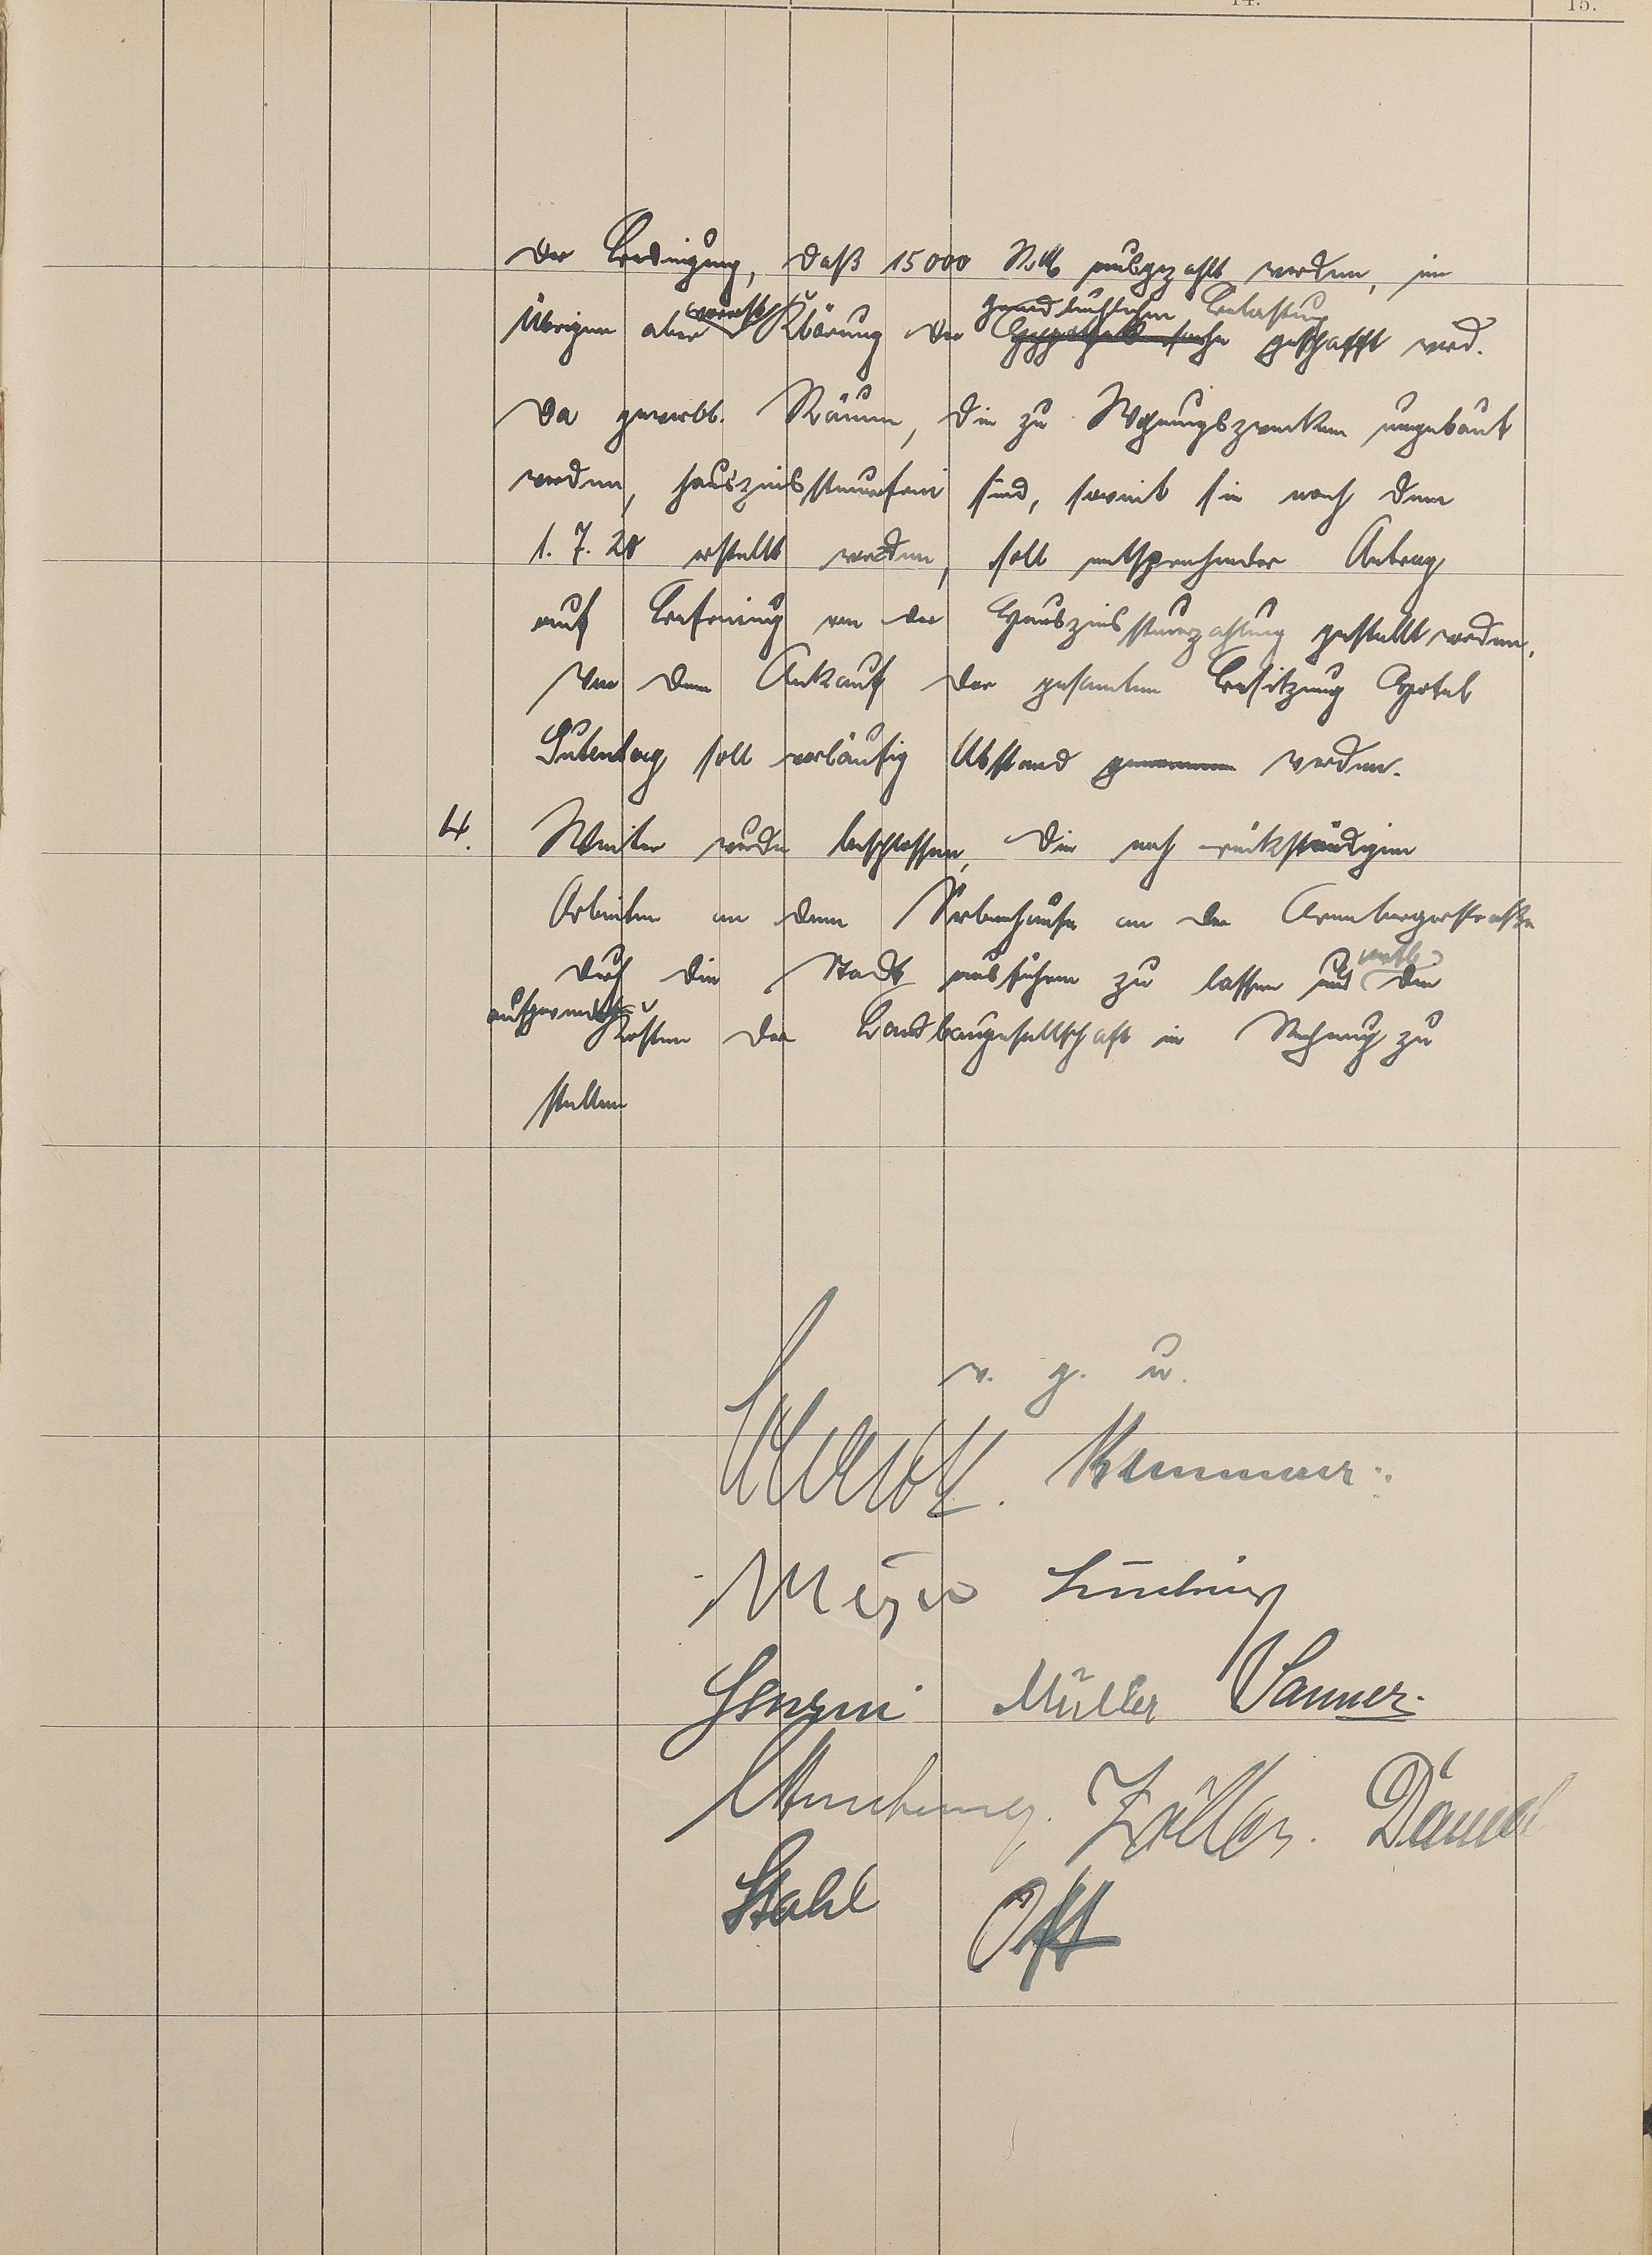 14. 15.
der Bedingung, daß 15000 RM ausgezahlt werden, im
Übrigen aber vorerst Klärung der grundbuchlichen Belastung geschafft wird.
Da gewerbl. Räume, die zu Wohnungszwecken umgebaut
werden, hauszinssteuerfrei sind, soweit sie nach dem
1. 7. 28 erstellt werden, soll entsprechender Antrag
auf Befreiung von der Hauszinssteuerzahlung gestellt werden.
Von dem Ankauf der gesamten Besitzung Hotel
Gutentag soll vorläufig Abstand genommen werden.
4. Weiter wurde beschlossen, die noch rückständigen
Arbeiten an dem Siebenhause an der Arensbergerstraße
durch die Stadt ausführen zu lassen und die
Kosten der Landbaugesellschaft in Rechnung zu
stellen
v. g. u.
Meyer
Müller Sanner.
Zöller.
Stahl Ott